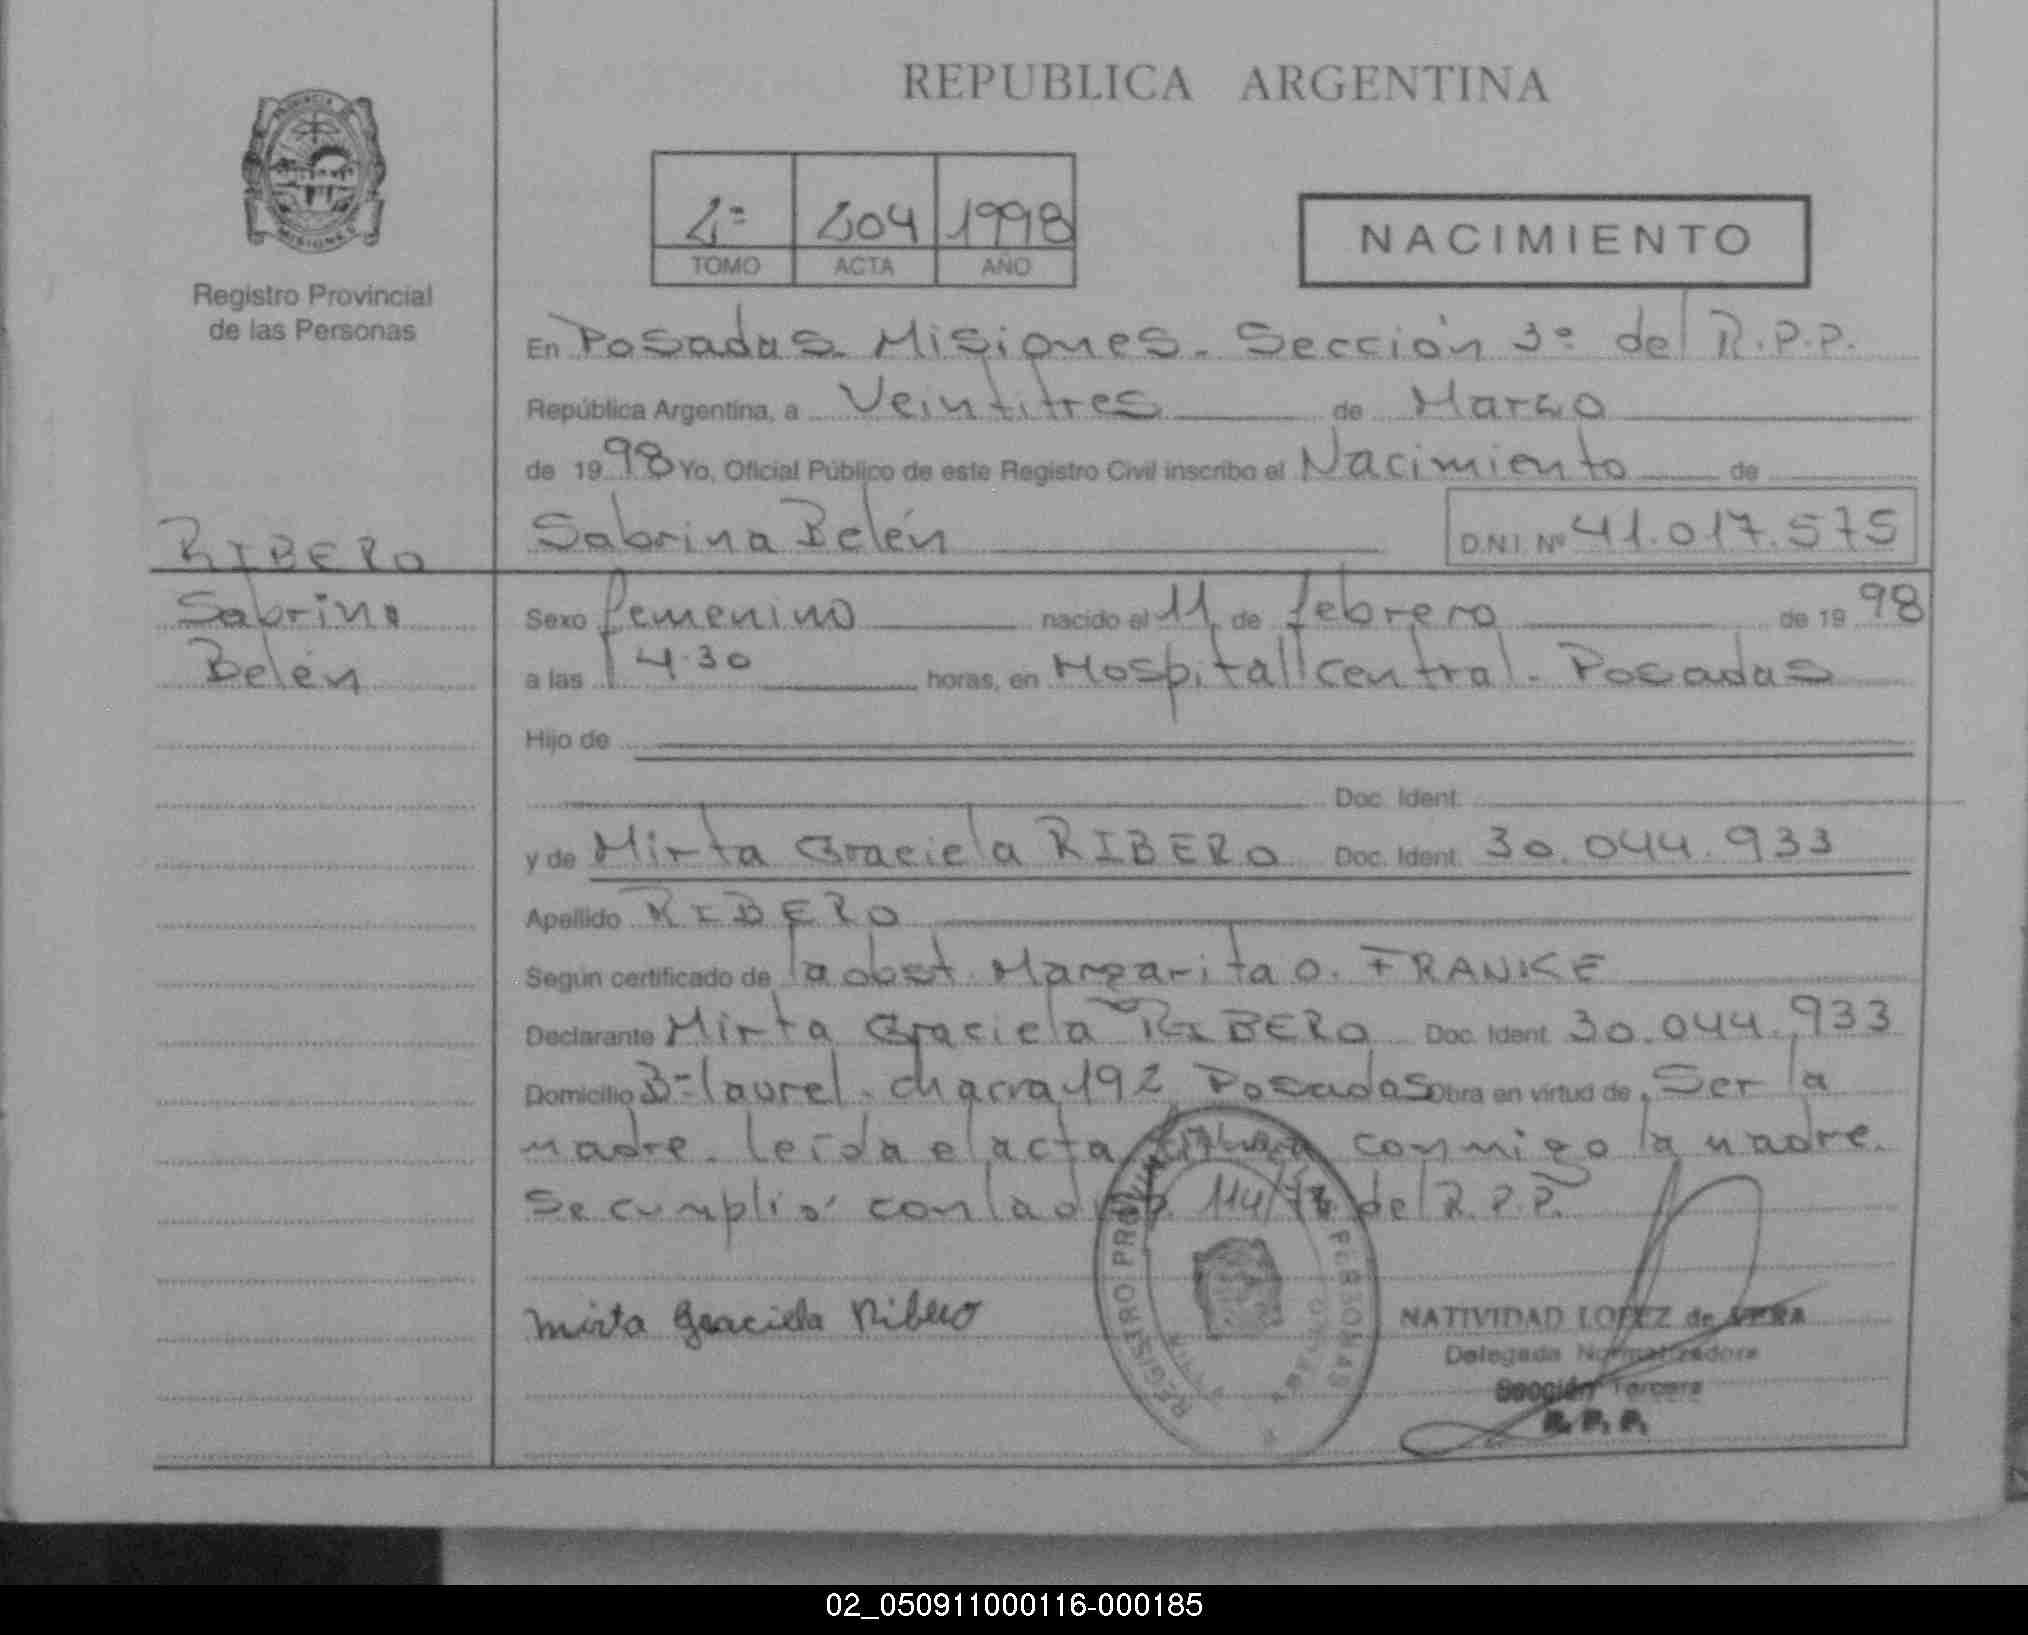 REPUBLICA ARGENTINA
PROVINCIA
MISIONES
Registro Provincial
de las Personas
1º 204 1998
TOMO ACTA AÑO
NACIMIENTO
En Posadas. Misiones. Sección 3º del R.P.P.
República Argentina, a Veintitres de Marzo
de 1998 Yo, Oficial Público de este Registro Civil inscribo el Nacimiento de
RIBERO
Sabrina Belén D.N.I. Nº 41.017.575
Sabrina
Belén
Sexo femenino nacido el 11 de febrero de 1998
a las 4.30 horas, en Hospital central. Posadas
Hijo de
Doc. Ident.
y de Mirta Graciela RIBERO Doc. Ident. 30.044.933
Apellido RIBERO
Según certificado de la obst. Margarita O. FRANKE
Declarante Mirta Graciela RIBERO Doc. Ident. 30.044.933
Domicilio Bº laurel. chacra 192 Posadas Obra en virtud de Ser la
madre. leída el acta conmigo la madre.
Se cumplió con la 114/ del R.P.P.
Mirta Graciela Ribero
REGISTRO PERSONAS
NATIVIDAD LOPEZ de VERA
Delegada Normalizadora
Sección Tercera
R.P.P.
02_050911000116-000185